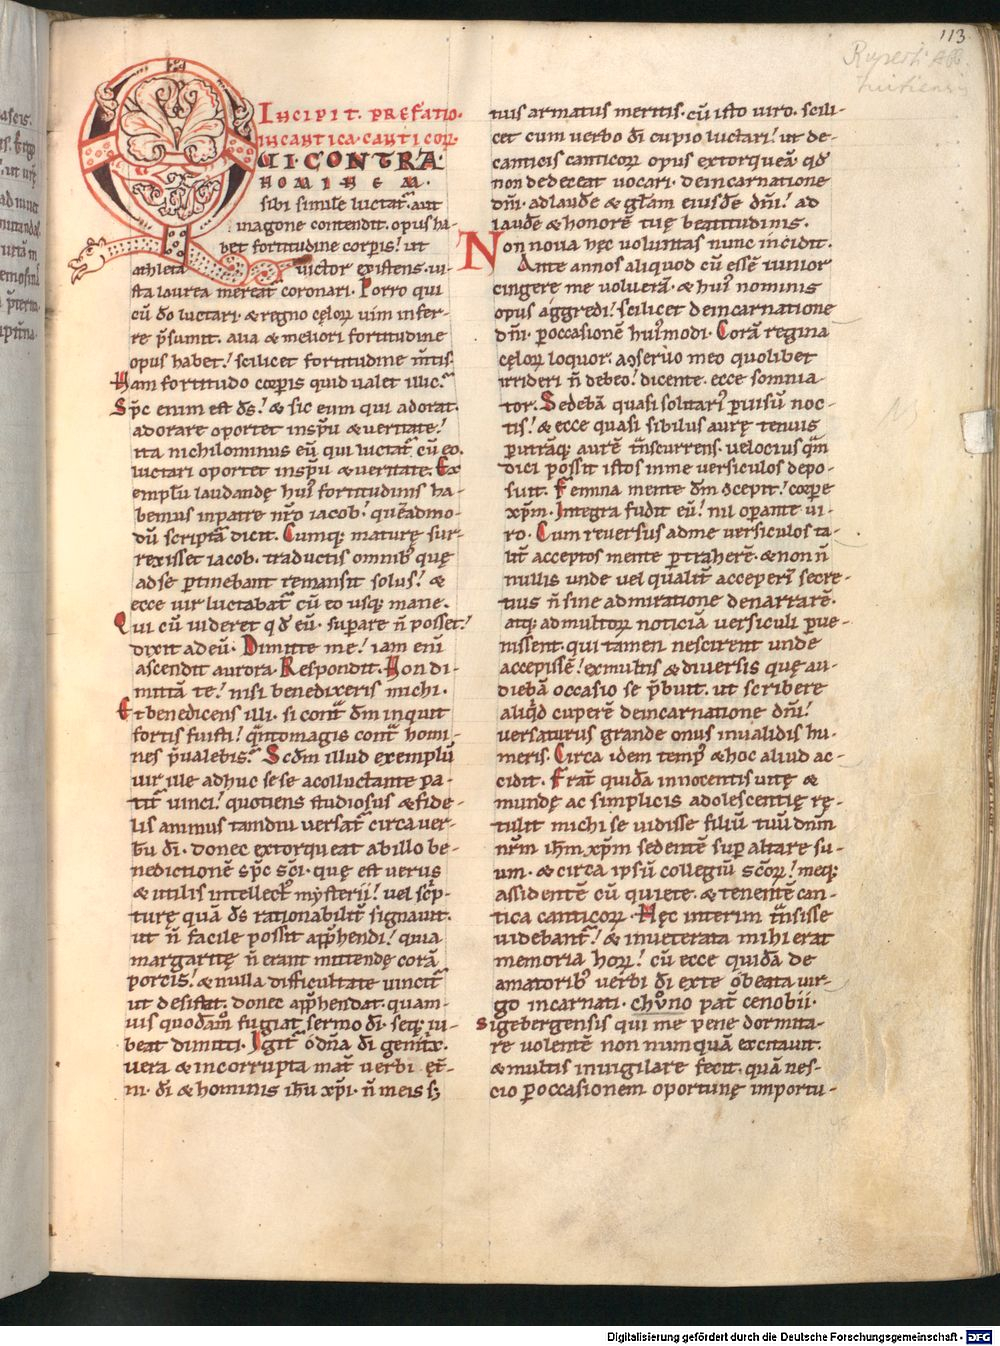 113
Ruperti Abb.
Tuitiensis
INCIPIT. PREFATIO.
IN CANTICA. CANTICOꝜ
QVI CONTRA
HOMINEM.
sibi simile luctat᷑. aut
in agone contendit. opus ha-
bet fortitudine corp̄is! ut
athleta uictor existens. iu-
sta laurea mereat᷑ coronari. Porro qui
cū d̄o luctari. & regno cęloꝝ uim infer-
re p̄sumit. alia & meliori fortitudine
opus habet! scilicet fortitudine m̄tis.
Nam fortitudo corp̄is quid ualet illic?
Sp̄c enim est d̄s! & sic eum qui adorat.
adorare oportet in sp̄u & ueritate!
ita nichilominus eū qui luctat᷑ cū eo.
luctari oportet in sp̄u & ueritate. Ex
emplū laudandę hui᷒ fortitudinis ha-
bemus in patre nr̄o iacob. quēadmo-
dū scriptᷓa dicit. Cumq; mature sur-
rexisset iacob. traductis omnib᷒ quę
ad se ꝑtinebant remansit solus! &
ecce uir luctabat᷑ cū eo usq; mane.
Qui cū uideret qd̄ eū. suꝑare n̄ posset!
dixit ad eū. Dimitte me! iam enī
ascendit aurora. Respondit. Non di-
mittā te! nisi benedixeris michi.
Et benedicens illi. si contᷓ dm̄ inquit
fortis fuisti! qᷓntomagis contᷓ homi-
nes p̄ualebis? Scd̄m illud exemplū
uir ille adhuc sese acolluctante pa-
tit᷑ uinci! quotiens studiosus & fide-
lis animus tamdiu uersat᷑ circa uer-
bū d̄i. donec extorqueat ab illo be-
nedictionē sp̄c sc̄i. quę est uerus
& utilis intellect᷒ mysterii! uel sc᷑p-
turę quā d̄s rationabilit᷑ signauit.
ut n̄ facile possit app̄hendi! quia
margaritę n̄ erant mittendę corā
porcis! & nulla difficultate uincit᷑
ut desistat. donec app̄hendat. quam-
uis quodāmo fugiat sermo d̄i. seq; iu-
beat dimitti. Igit᷑ o dn̄a d̄i genitͥx.
uera & incorrupta mat᷑ uerbi et̄-
ni. d̄i & hominis ih̄u xp̄i. n̄ meis sꝫ
tuis armatus meritis. cū isto uiro. scili-
cet cum uerbo d̄i cupio luctari! ut de-
canticis canticoꝝ opus extorqueā. qd̄
non dedeceat uocari. de incarnatione
dn̄i. ad laudē & glam̄ eiusdē dn̄i! ad
laudē & honorē tuę beatitudinis.
Non noua hęc uoluntas nunc incidit.
Ante annos aliquod cū essē iunior
cingere me uoluerā. & hui᷒ nominis
opus aggredi! scilicet de incarnatione
dn̄i. ꝑ occasionē hui᷒modi. Corā regina
cęloꝝ loquor. a ꝯseruo meo quolibet
irrideri n̄ debeo! dicente. ecce somnia-
tor. Sedebā quasi solitari᷒ ꝑ uisū noc-
tis! & ecce quasi sibilus aurę tenuis
ꝑ utrāq; aurē tᷓnscurrens. uelocius qᷓm
dici possit istos in me uersiculos depo-
suit. Femina mente dm̄ ꝯcepit! corpore
xp̄m. Integra fudit eū! nil oꝑante ui-
ro. Cum reuersus ad me uersiculos ta-
lit᷑ acceptos mente ꝑtraherē. & non n̄
nullis unde uel qualit᷑ acceperī secre-
tius n̄ sine admiratione denarrarē.
atq; ad multoꝝ noticiā uersiculi ꝑue-
nissent. qui tamen nescirent unde
accepissē! ex multis & diuersis quę au-
diebā occasio se p̄buit. ut scribere
aliqͥd cuperē de incarnatione dn̄i!
uersaturus grande onus inualidis hu-
meris. Circa idem temp᷒ & hoc aliud ac-
cidit. Frat᷑ quidā innocentis uitę &
mundę ac simplicis adolescentię rę-
tulit michi se uidisse filiū tuū dn̄m
nr̄m ih̄m xp̄m sedentē suꝑ altare su-
um. & circa ipsū collegiū sc̄oꝝ! meq;
assidentē cū quiete. & tenentē can-
tica canticoꝝ. Hęc interim tᷓnsisse
uidebant᷑! & inueterata mihi erat
memoria hoꝝ! cū ecce quidā de
amatorib᷒ uerbi d̄i ex te o beata uir-
go incarnati. chv̊no pat᷑ cenobii.
Sigebergensis qui me pene dormita-
re uolentē non numquā excitauit.
& multis inuigilare fecit. quā nes-
cio ꝑ occasionem oportunę importu-
Digitalisierung gefördert durch die Deutsche Forschungsgemeinschaft - DFG